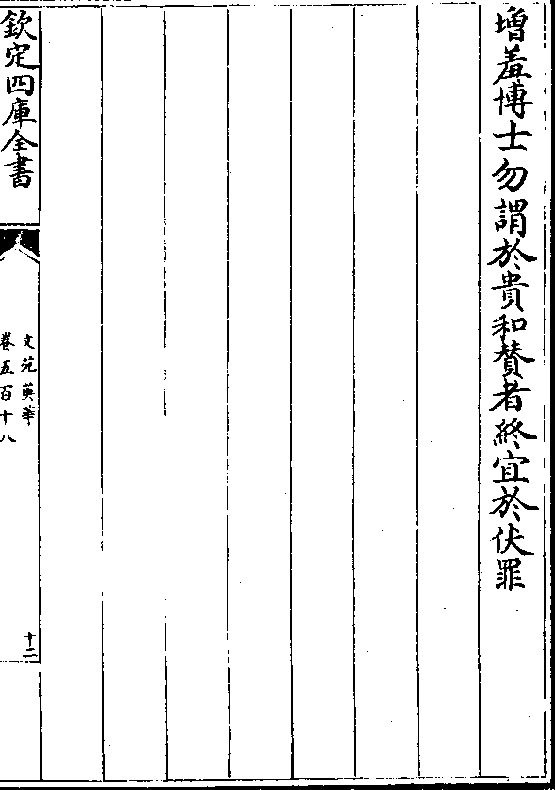 增羞博士勿謂於貴和賛者終宜於伏罪
欽定四庫全書
文苑英華
卷五百十八
十二